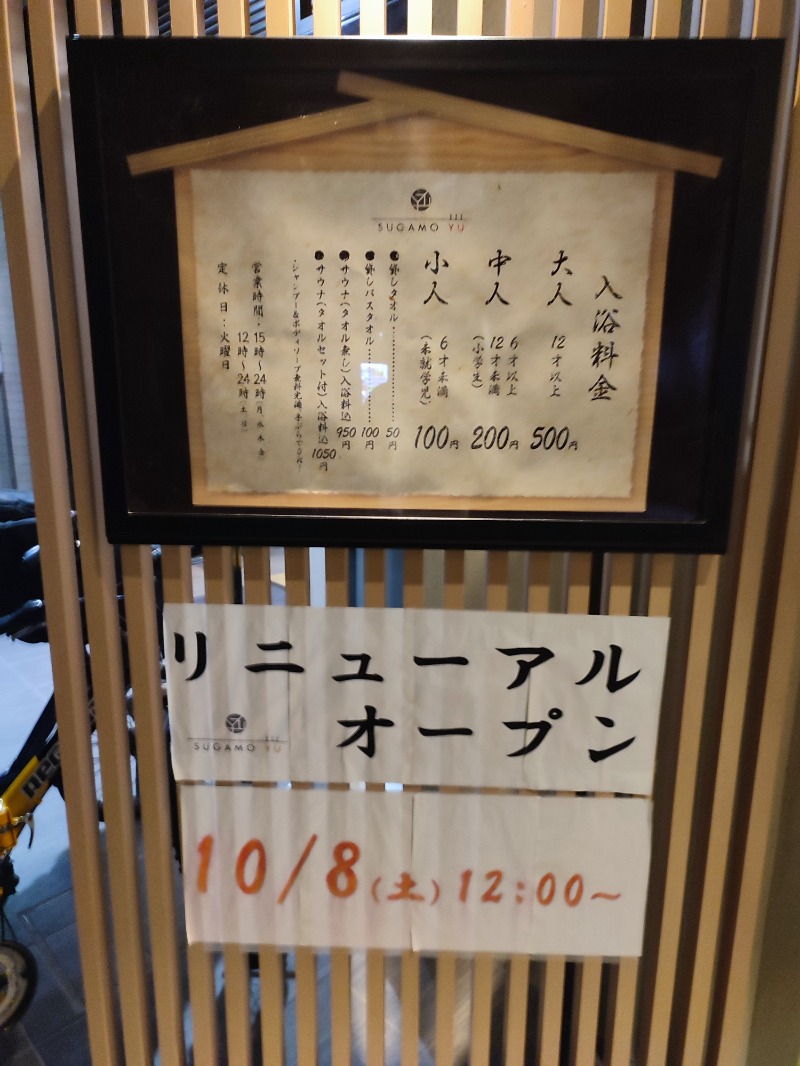 SUGAMO YU
入浴料金
大人 12才以上 500円
中人 6才以上
12才未満
(小学生) 200円
小人 6才未満
(未就学児) 100円
●貸しタオル 50円
●貸しバスタオル 100円
●サウナ(タオル無し)入浴料込 950円
●サウナ(タオルセット付)入浴料込 1050円
・シャンプー&ボディソープ無料完備 手ぶらでOK!
営業時間・15時〜24時(月 水 木 金)
12時〜24時(土 日)
定休日:火曜日
リニューアル
オープン
SUGAMO YU
10/8(土)12:00〜